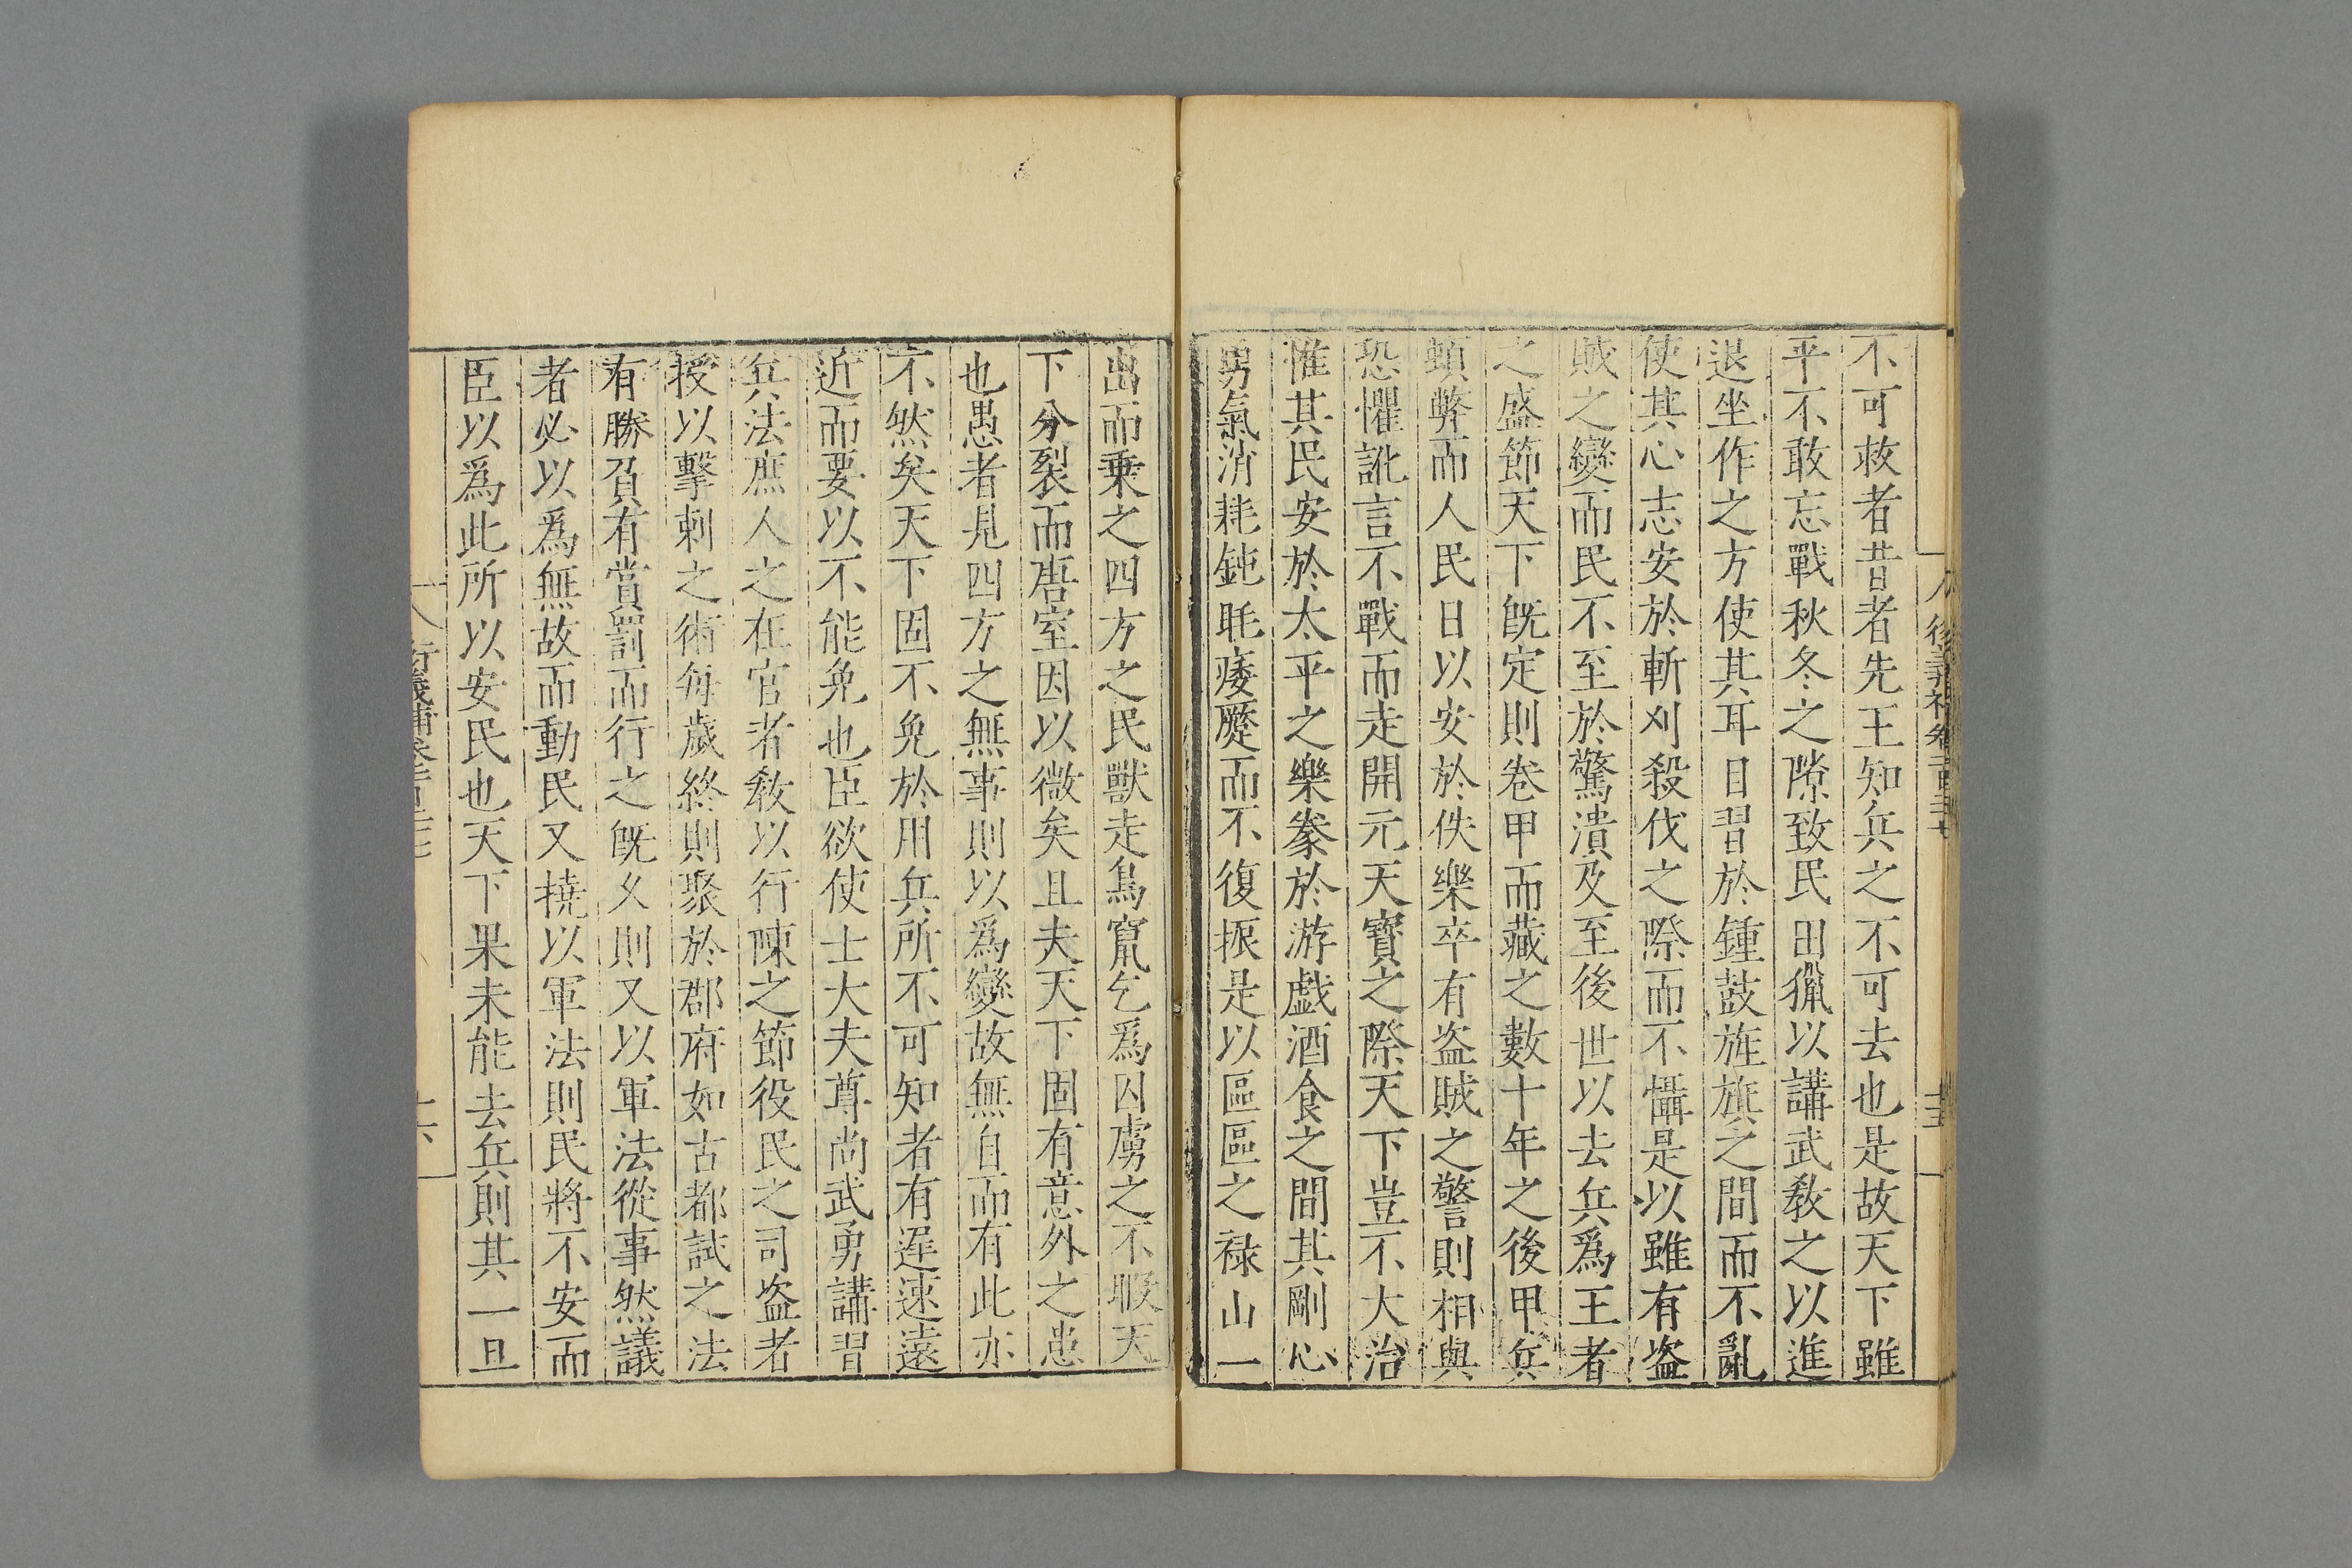 不可救者昔者先王知兵之不可去也是故天下雖
平不敢忘戰秋冬之隙致民田獵以講武敎之以進
退坐作之方使其耳目習於鍾鼓旌旗之間而不亂
使其心志安於斬刈殺伐之際而不懾是以雖有盗
賊之變而民不至於驚潰及至後世以去兵爲王者
之盛節天下旣定則卷甲而藏之數十年之後甲兵
頓弊而人民日以安於佚樂卒有盗賊之警則相與
恐懼訛言不戰而走開元天寶之際天下豈不大治
惟其民安於太平之樂豢於游戲酒食之間其剛心
勇氣消耗鈍眊痿蹷而不復振是以區區之禄山一
出而乗之四方之民獸走鳥竄乞爲囚虜之不暇天
下分裂而唐室因以微矣且夫天下固有意外之患
也愚者見四方之無事則以爲變故無自而有此亦
不然矣天下固不免於用兵所不可知者有遲速遠
近而要以不能免也臣欲使士大夫尊尚武勇講習
兵法庶人之在官者敎以行陳之節役民之司盗者
授以擊刺之術每歲終則聚於郡府如古都試之法
有勝負有賞罰而行之旣久則又以軍法從事然議
者必以爲無故而動民又撓以軍法則民將不安而
臣以爲此所以安民也天下果未能去兵則其一旦